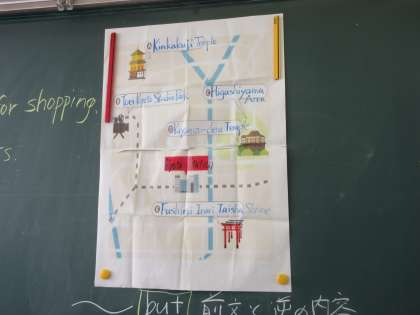 @Kinkakuji Temple
for shopping.
@Toei Kyoto Studio Park
@Higashiyama
Area
s.
@Kiyomizu-dera Temple
Kyoto
@Fushimi Inari Taisha Shrine
〜 but 前文と逆の内容